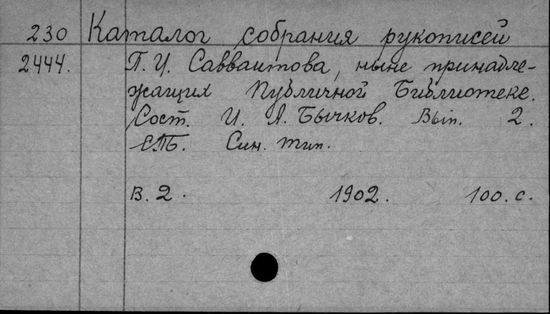 230 Каталог собрания рукописей
2444. П. И. Савваитова, ныне принадле-
жащих Публичной Библиотеке.
Сост. И. А. Бычков. Вып. 2.
СПБ. Син. тип.
В. 2. 1902. 100. с.